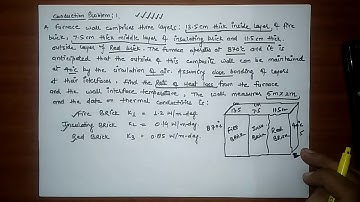 Conduction Problem : 1.
A furnace wall comprises three layers: 13.5 cm thick inside layer of fire
brick, 7.5 cm thick middle layer of insulating brick and 11.5 cm thick
outside layer of Red brick. The furnace operates at 870°C and it is
anticipated that the outside of this composite wall can be maintained
at 40°C by the circulation of air. Assuming close bonding of layers
at their interfaces, find the Rate of heat loss from the furnace
and the wall interface temperature. The wall measures 5m x 2m
and the data on thermal conductivities is:
Fire Brick K1 = 1.2 W/m-deg.
Insulating Brick K2 = 0.14 W/m-deg
Red Brick K3 = 0.85 W/m-deg.
13.5 7.5 11.5cm
870°C Fire Brick Insu Brick Red Brick 40°C